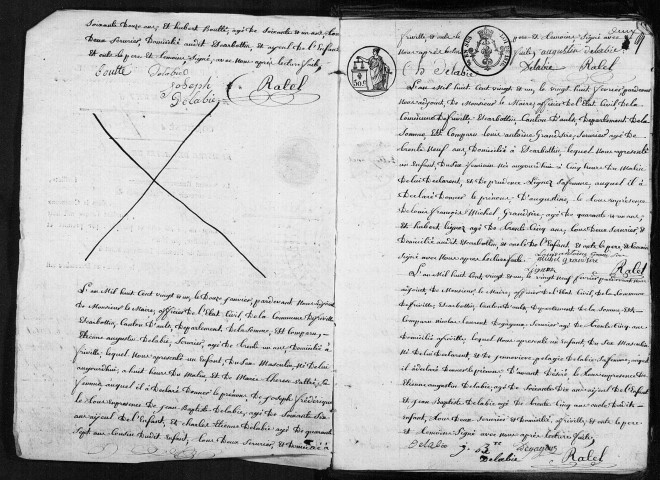 Soixante douze ans, et hubert Boutté, agé de Soixante et un ans, tous
deux Serrurier, Domicilié audit Escarbottin, et ayeul de l'Enfant
et ont le pere et temoins Signé, avec nous après lecture faite
Boutté Delabie
Joseph Ratel
Delabie
L'an Mil huit Cent vingt et un, le Douze janvier, pardevant Nous adjoint
de Monsieur le Maire, officier de l'Etat Civil, de la Commune de friville
Escarbottin, Canton d'ault, departement de la Somme, Est Comparu
Etienne augustin Delabie, Serrurier, agé de trente un ans, domicilié à
friville, lequel Nous a presenté un Enfant, du Sexe Masculin, Né
aujourd'hui, a huit heures du Matin, et de Marie Therese
femme, auquel il à Déclaré Donner le prénom de Joseph frédérique
le tous en presence de Jean Baptiste Delabie, agé de Soixante
ans ayeul de l'Enfant, et Charles Etienne Delabie agé de quarante
Sept ans Cousin dudit Enfant, tous deux Serrurier, et Domicilié à
friville, et ont le pere et temoins, Signé avec
nous après lecture faite augustin delabie
Ch Delabie Delabie Ratel
L'an Mil huit Cent vingt et un, le vingt huit fevrier pardevant
nous adjoint, de Monsieur le Maire, officier de l'Etat Civil de la
Commune de friville Escarbottin, Canton d'ault, departement de la
Somme, Est Comparu louis antoine Grandsire, Serrurier agé de
trente Neuf ans, Domicilié à Escarbottin, lequel Nous a representé
un Enfant, du Sexe feminin née aujourd'hui à Cinq heures du Matin
de lui declarant, et de prudence Lignez Safemme, auquel il à
déclaré Donner le prénom d'augustine, le tous en présence
de louis françois Michel Grandsire, agé de quarante un ans,
et hubert Lignez agé de trente Cinq ans, tous deux Serrurier, et
Domicilié audit Escarbottin, et oncle de l'Enfant et ont le pere, et temoins
Signé avec Nous après lecture faite.
michel grandsire
Ratel
L'an Mil huit Cent vingt et un, le vingt neuf fevrier pardevant Nous
adjoint, de Monsieur le Maire, officier de l'Etat Civil, de la Commune
de friville, Escarbottin, Canton d'ault, departement de la Somme, Est
Comparu Nicolas laurent Serrurier agé de trente Cinq ans,
Domicilié à friville, lequel Nous a presenté un Enfant, du Sexe Masculin
Né de lui declarant, et de genevieve pelagie Delabie, Safemme, auquel
il à déclaré donner le prénom le tous en presence de
Etienne augustin Delabie, agé de Soixante Dix ans ayeul de l'Enfant
et Jean Baptiste Delabie, agé de trente Cinq ans oncle dudit
enfant, tous deux Serrurier et Domicilié, à friville, et ont le pere
et temoins Signé avec nous après lecture faite
Delabie J. B.te
Delabie Ratel